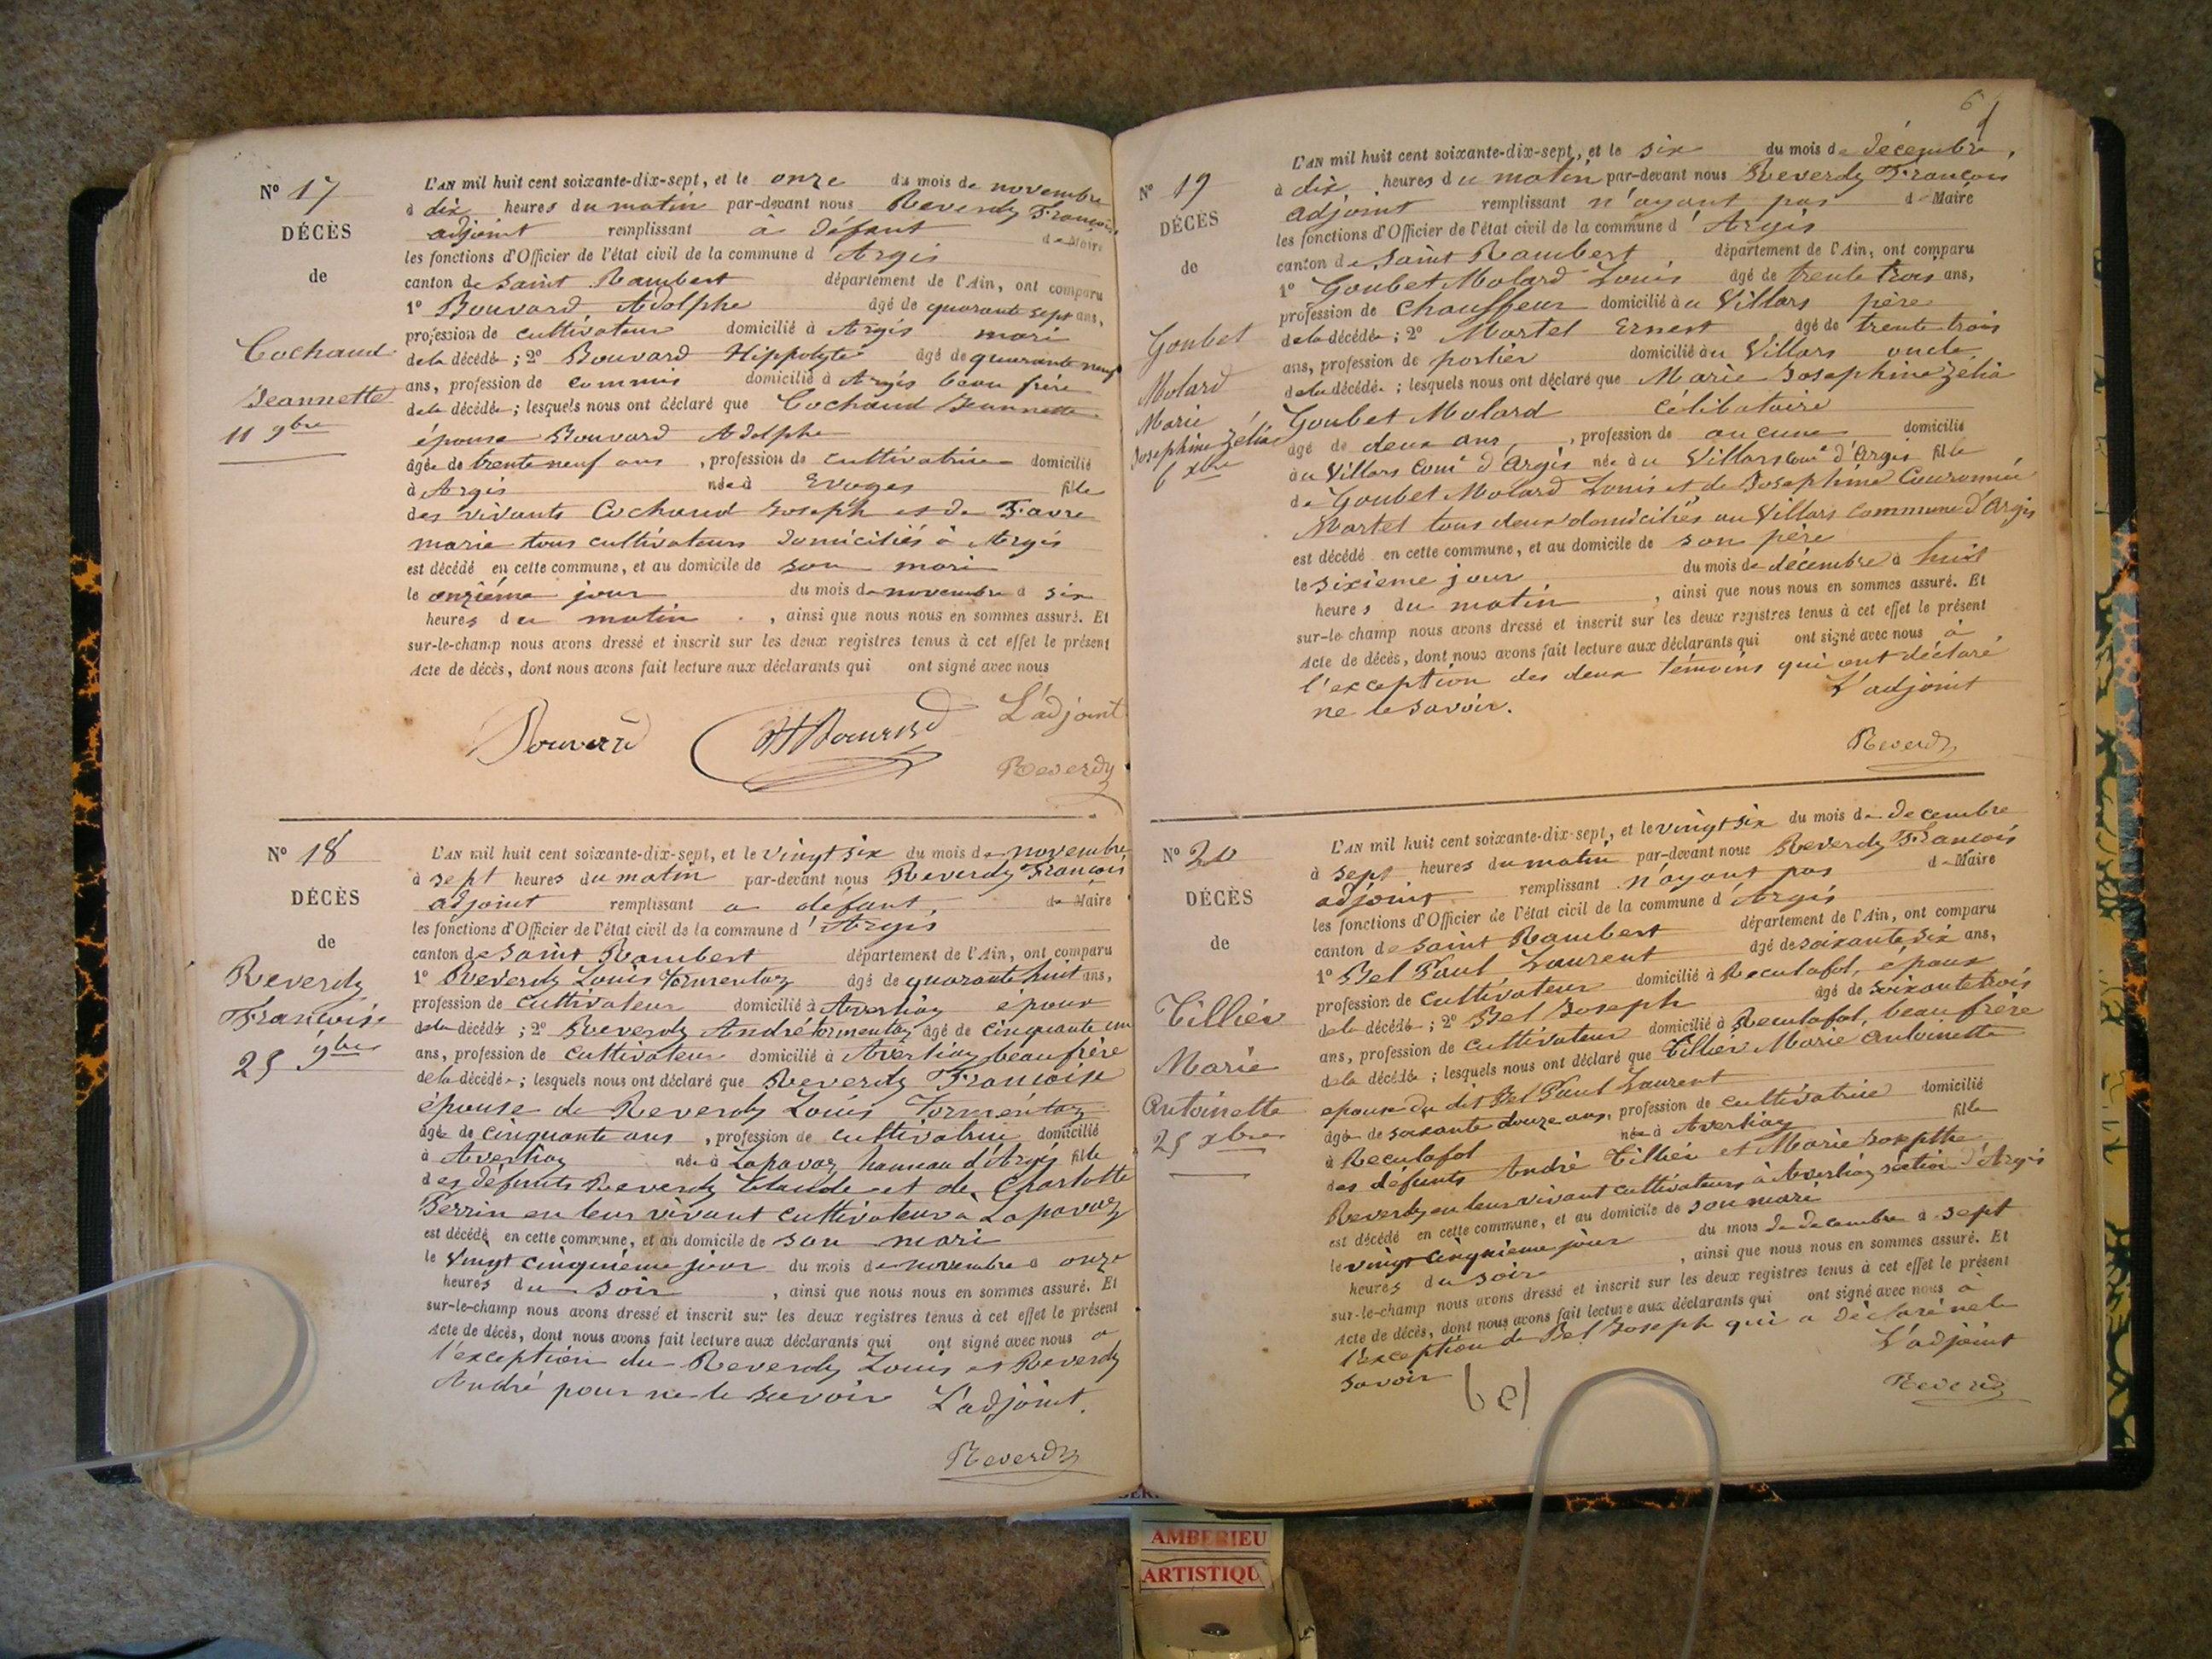 N° 17
DÉCÈS
de
Cochaud
Jeannette
11 9bre
L'AN mil huit cent soixante-dix-sept, et le onze du mois de novembre
à dix heures du matin par-devant nous Reverdy François
adjoint remplissant à défaut de Maire
les fonctions d'Officier de l'état civil de la commune d'Argis
canton de Saint Rambert département de l'Ain, ont comparu
1° Bouvard Adolphe âgé de quarante sept ans,
profession de cultivateur domicilié à Argis mari
de la décédée ; 2° Bouvard Hippolyte âgé de quarante neuf
ans, profession de commis domicilié à Argis beau frère
de la décédée ; lesquels nous ont déclaré que Cochaud Jeannette
épouse Bouvard Adolphe
âgée de trente neuf ans , profession de cultivatrice domicilié
à Argis née à Evoges fille
des vivants Cochaud Joseph et de Favre
marie tous cultivateurs domiciliés à Argis
est décédé en cette commune, et au domicile de son mari
le onzième jour du mois de novembre à six
heures du matin , ainsi que nous nous en sommes assuré. Et
sur-le-champ nous avons dressé et inscrit sur les deux registres tenus à cet effet le présent
Acte de décès, dont nous avons fait lecture aux déclarants qui ont signé avec nous
L'adjoint
Bouvard HBouvard
Reverdy
N° 18
DÉCÈS
de
Reverdy
Françoise
25 9bre
L'AN mil huit cent soixante-dix-sept, et le vingt six du mois de novembre
à sept heures du matin par-devant nous Reverdy François
adjoint remplissant a défaut, de Maire
les fonctions d'Officier de l'état civil de la commune d'Argis
canton de Saint Rambert département de l'Ain, ont comparu
1° Reverdy Louis Tormentaz âgé de quarante huit ans,
profession de cultivateur domicilié à Averliaz epoux
de la décédée ; 2° Reverdy André tormentaz âgé de cinquante un
ans, profession de cultivateur domicilié à Averliaz beau frère
de la décédée ; lesquels nous ont déclaré que Reverdy Françoise
épouse de Reverdy Louis Tormentaz
âgé de cinquante ans , profession de cultivatrice domicilié
à Averliaz née à Lapavaz hameau d'Argis fille
des défunts Reverdy Claude et de Charlotte
Perrin en leur vivant cultivateur à Lapavaz
est décédé en cette commune, et au domicile de son mari
le vingt cinquième jour du mois de novembre à onze
heures du soir , ainsi que nous nous en sommes assuré. Et
sur-le-champ nous avons dressé et inscrit sur les deux registres tenus à cet effet le présent
Acte de décès, dont nous avons fait lecture aux déclarants qui ont signé avec nous a
l'exception du Reverdy Louis et Reverdy
André pour ne le savoir L'adjoint.
Reverdy
N° 19
DÉCÈS
de
Goubet
Molard
Marie
Josephine Zélia
6 xbre
L'AN mil huit cent soixante-dix-sept, et le six du mois de décembre,
à dix heures du matin par-devant nous Reverdy François
adjoint remplissant n'ayant pas de Maire
les fonctions d'Officier de l'état civil de la commune d'Argis
canton de Saint Rambert département de l'Ain, ont comparu
1° Goubet Molard Louis âgé de trente trois ans,
profession de chauffeur domicilié à u Villars père
de la décédée ; 2° Martel Ernest âgé de trente trois
ans, profession de portier domicilié àu Villars oncle
de la décédée ; lesquels nous ont déclaré que Marie Josephine Zélia
Goubet Molard célibataire
âgé de deux ans , profession de aucune domicilié
àu Villars Comᵉ d'Argis née àu Villars comᵉ d'Argis fille
de Goubet Molard Louis et de Josephine Couronnée
Martel tous deux domiciliés au Villars commune d'Argis
est décédé en cette commune, et au domicile de son père
le sixieme jour du mois de décembre à huit
heures du matin , ainsi que nous nous en sommes assuré. Et
sur-le-champ nous avons dressé et inscrit sur les deux registres tenus à cet effet le présent
Acte de décès, dont nous avons fait lecture aux déclarants qui ont signé avec nous à
l'exception des deux témoins qui ont déclaré
ne le savoir. L'adjoint
Reverdy
N° 20
DÉCÈS
de
Tillier
Marie
Antoinette
25 xbre
L'AN mil huit cent soixante-dix-sept, et le vingt six du mois de decembre
à sept heures du matin par-devant nous Reverdy François
adjoint remplissant n'ayant pas de Maire
les fonctions d'Officier de l'état civil de la commune d'Argis
canton de Saint Rambert département de l'Ain, ont comparu
1° Bel Paul Laurent âgé de soixante six ans,
profession de cultivateur domicilié à Reculafol, époux
de la décédée ; 2° Bel Joseph âgé de soixante trois
ans, profession de cultivateur domicilié à Reculafol, beau frère
de la décédée ; lesquels nous ont déclaré que Tillier Marie Antoinette
epouse du dit Bel Paul Laurent
âgée de soixante douze ans, profession de cultivatrice domicilié
à Reculafol née à Averliaz fille
des défunts André Tillier et Marie Josepthe
Reverdy en leur vivant cultivateurs à Averliaz section d'Argis
est décédé en cette commune, et au domicile de son mari
le vingt cinquieme jour du mois de decembre à sept
heures du soir , ainsi que nous nous en sommes assuré. Et
sur-le-champ nous avons dressé et inscrit sur les deux registres tenus à cet effet le présent
Acte de décès, dont nous avons fait lecture aux déclarants qui ont signé avec nous à
l'exception de Bel Joseph qui a déclaré ne le
savoir L'adjoint
bel Reverdy
AMBERIEU
ARTISTIQU